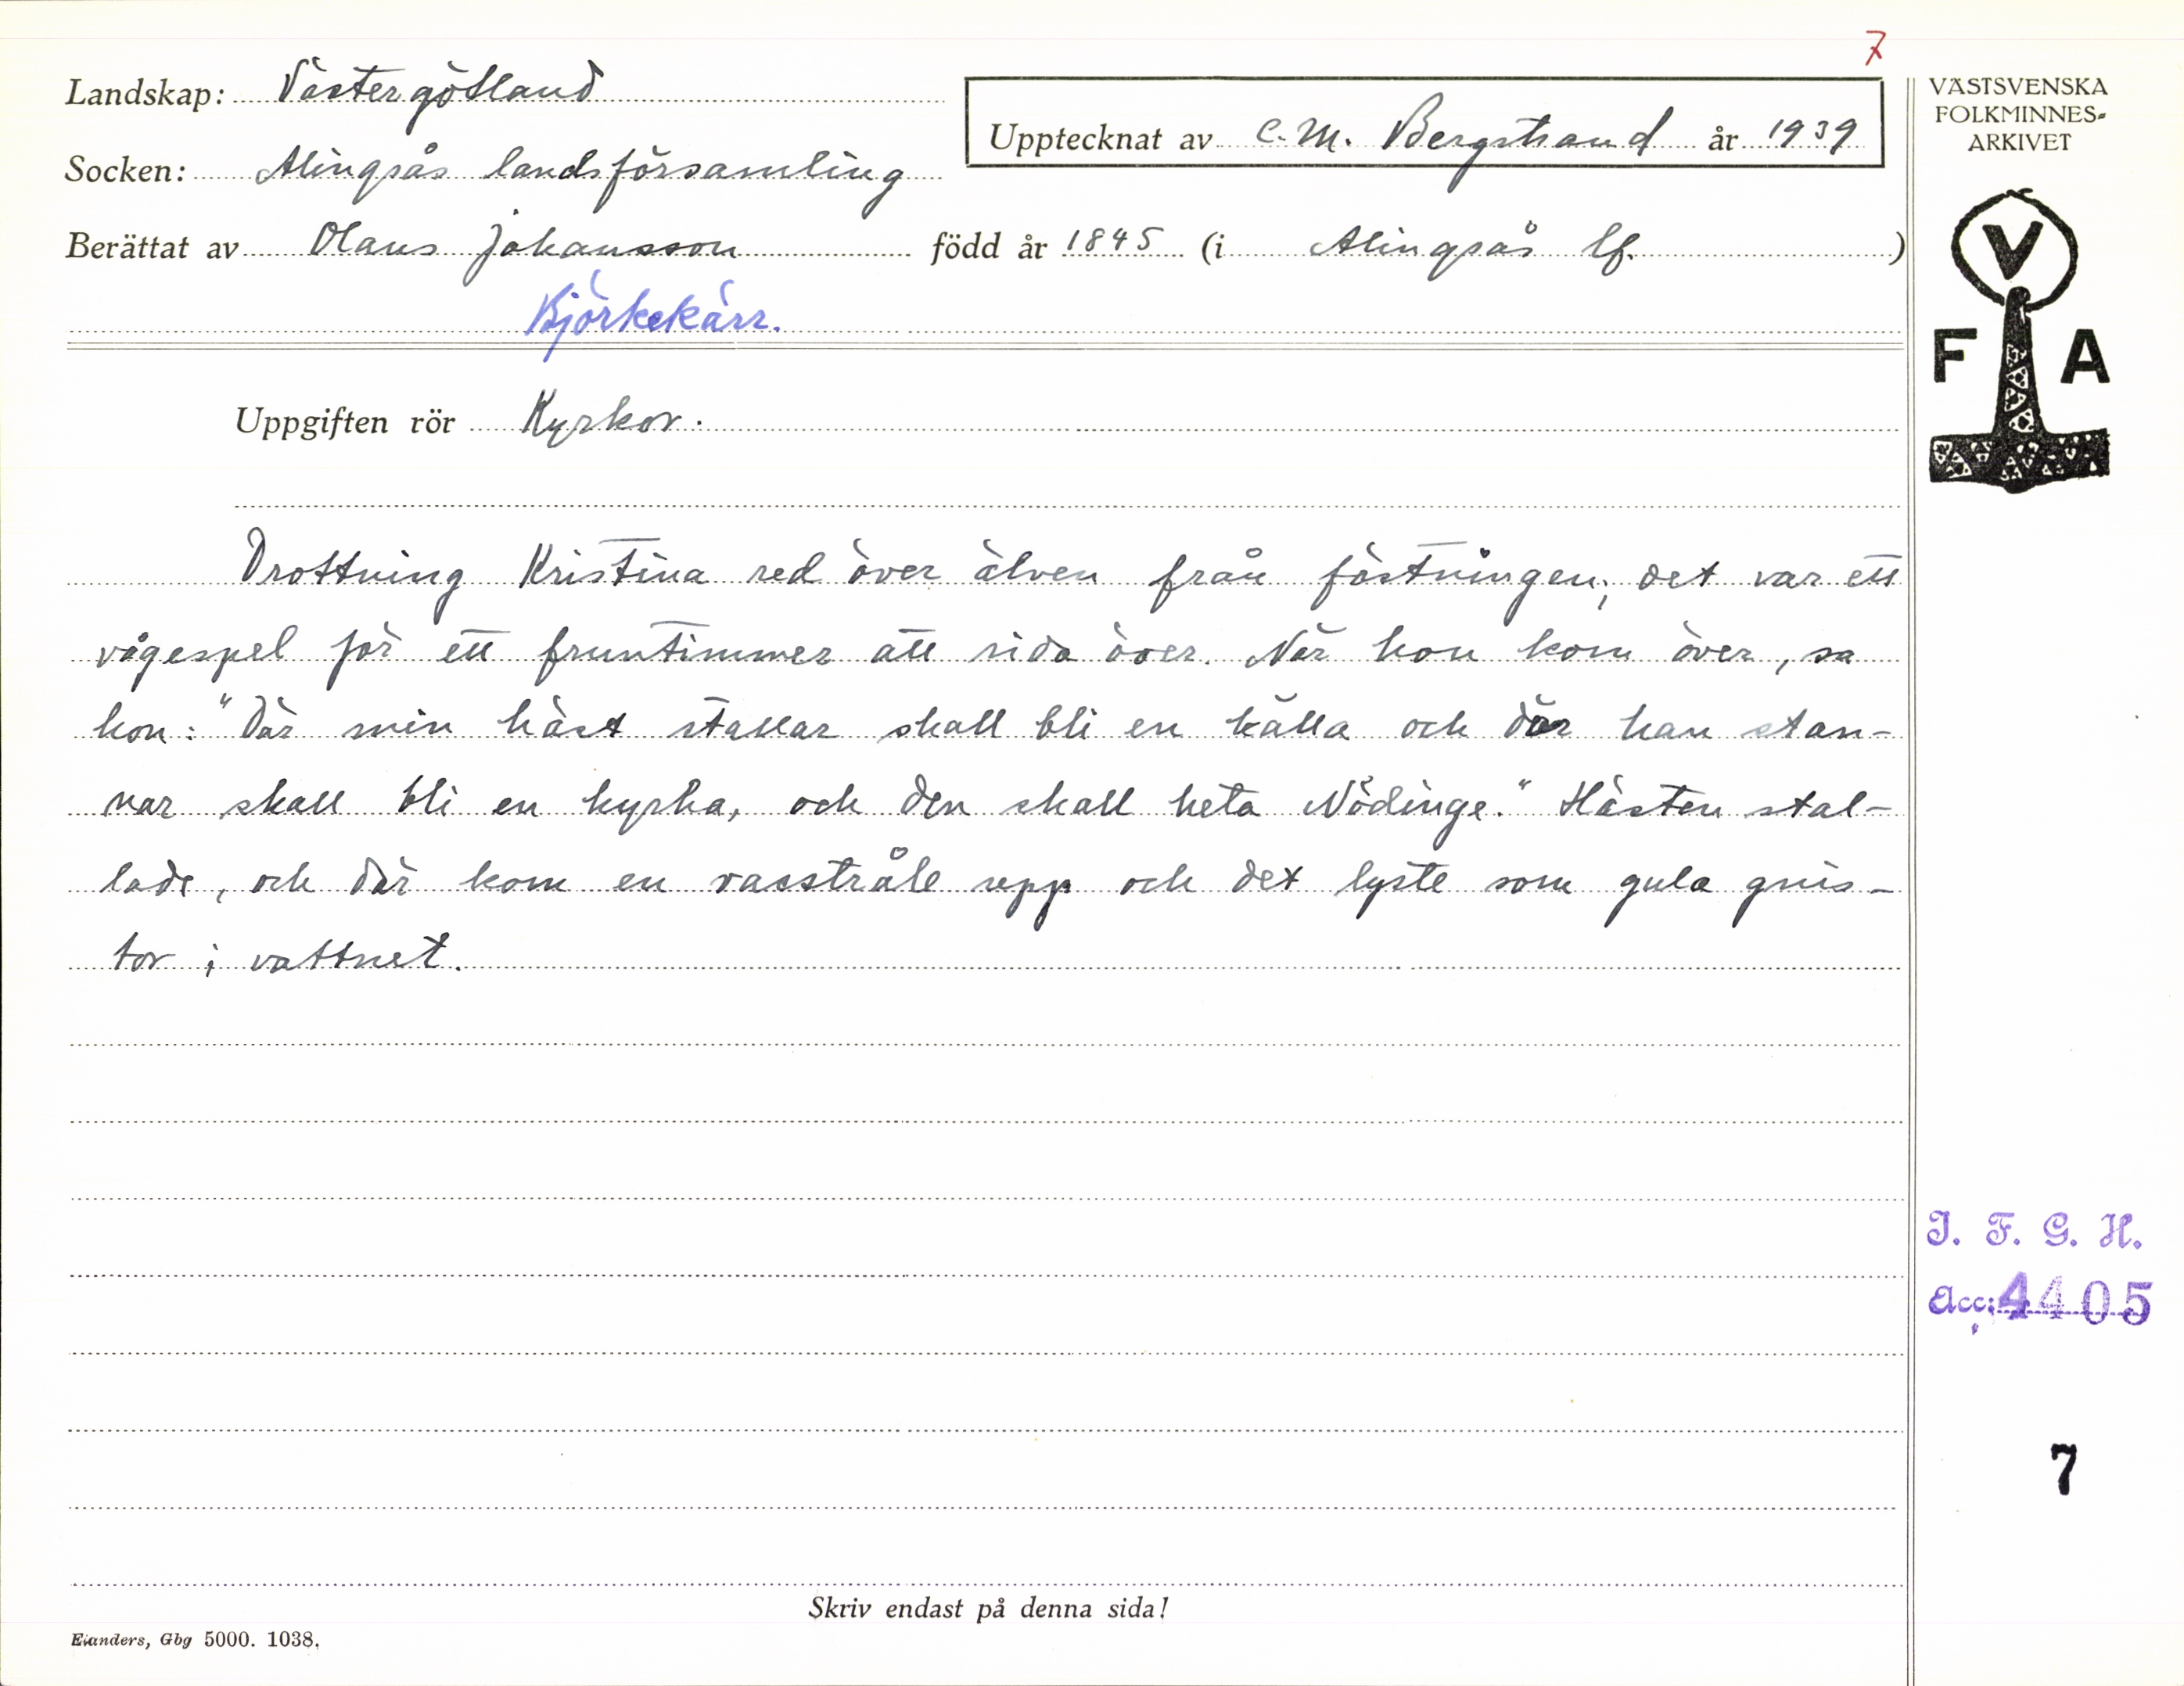 7
Landskap: Västergötland
Upptecknat av C. M. Bergstrand år 1939
VÄSTSVENSKA
FOLKMINNES-
ARKIVET
Socken: Alingsås landsförsamling
Berättat av Olaus Johansson född år 1845 (i Alingsås lf. )
Björkekärr.
V
F A
Uppgiften rör Kyrkor.
Drottning Kristina red över älven från fästningen; det var ett
vågespel för ett fruntimmer att rida över. När hon kom över, sa
hon: "Där min häst stallar skall bli en källa och där han stan-
nar skall bli en kyrka, och den skall heta Nödinge." Hästen stal-
lade, och där kom en vasstråle upp och det lyste som gula gnis-
tor i vattnet.
I. F. G. H.
Acc: 4405
7
Skriv endast på denna sida!
Elanders, Gbg 5000. 1038.